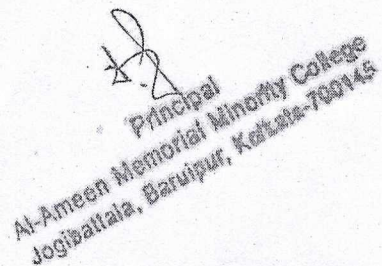 Principal
Al-Ameen Memorial Minority College
Jogibattala, Baruipur, Kolkata-700145